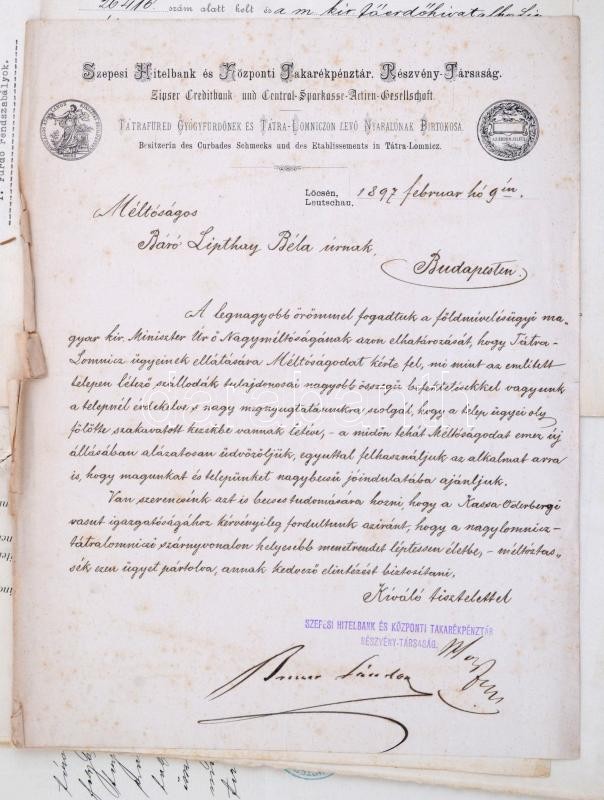 26416 szám alatt kelt és a m. kir. főerdőhivatalhoz
Szepesi Hitelbank és Központi Takarékpénztár. Részvény-Társaság.
Zipser Creditbank und Central-Sparkasse-Actien-Gesellschaft.
TÁTRAFÜRED GYÓGYFÜRDŐNEK ÉS TÁTRA-LOMNICZON LEVŐ NYARALÓNAK BIRTOKOSA.
Besitzerin des Curbades Schmecks und des Etablissements in Tátra-Lomnicz.
Löcsén, 1897 február hó 9én.
Leutschau,
Méltóságos
Báró Lipthay Béla úrnak,
Budapesten.
A legnagyobb örömmel fogadtuk a földmívelésügyi ma-
gyar kir. Miniszter Úr ő Nagyméltóságának azon elhatározását, hogy Tátra-
Lomnicz ügyeinek ellátására Méltóságodat kérte fel, mi mint az említett
telepen létező szállodák tulajdonosai nagyobb összgű befektetésekkel vagyunk
a telepnél érdekelve s nagy megnyugtatásunkra szolgál, hogy a telep ügyei oly
fölötte szakavatott kezekbe vannak letéve, - a midőn tehát Méltóságodat emez új
állásában alázatosan üdvözöljük, egyuttal felhasználjuk az alkalmat arra
is, hogy magunkat és telepünket nagybecsű jóindulatába ajánljuk.
Van szerencsénk azt is becses tudomására hozni, hogy a Kassa-Oderbergi
vasut igazgatóságához kérvényileg fordultunk aziránt, hogy a nagylomnicz-
tátralomniczi szárnyvonalon helyesebb menetrendet léptessen életbe, - méltóztas-
sék ezen ügyet pártolva, annak kedvező elintézést biztosítani.
Kiváló tisztelettel
SZEPESI HITELBANK ÉS KÖZPONTI TAKARÉKPÉNZTÁR
RÉSZVÉNY-TÁRSASÁG.
Sándor